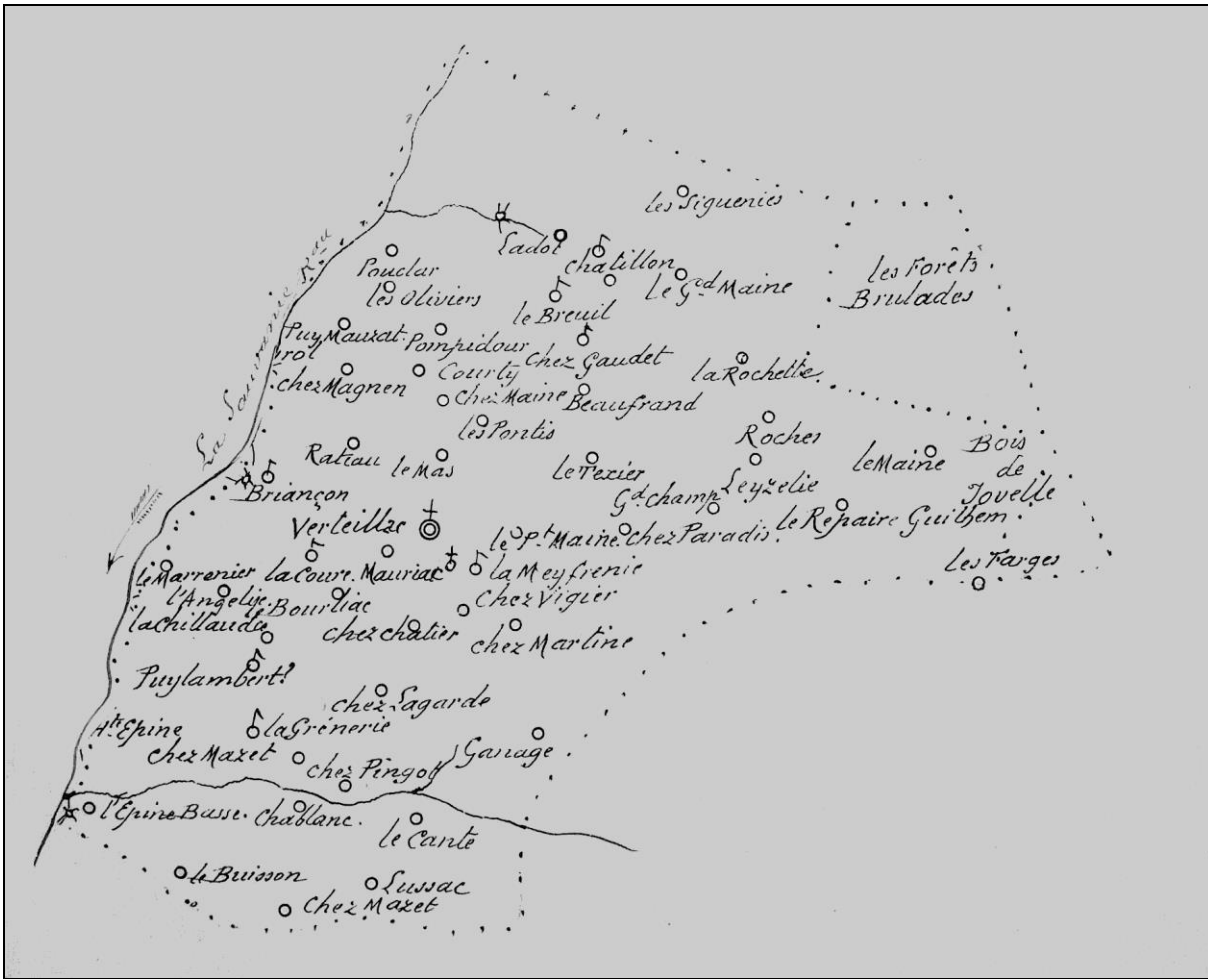 les Sigueniés
Ladol
Chatillon
le Gd Maine
les Forêts
Brulades
La Sauvanie Rau
Pouclar
les Oliviers
le Breuil
Puy Mauzat.
rol
Pompidour
chez Gaudet
la Rochette.
chez Magnen
Courty
chez Maine
Beaufrand
les Pontis
Roches
Rateau
le Mas
le Texier
Leyzelie
le Maine
Bois
de
Jovelle
Briançon
Gd Champ
Verteillac
le Pt Maine
chez Paradis.
le Repaire Guilhem.
les Farges
le Marronier
la Coure.
Mauriac
la Meyfrenie
l'Angelie.
le Bourliac
chez Vigier
la Chillaudie
chez chatier
chez Martine
Puylambert
chez Lagarde
Hte Epine
la Grènerie
chez Mazet
chez Pingot
Ganage
l'Epine Basse.
Chablanc.
le Cante
le Buisson
Lussac
Chez Mazet